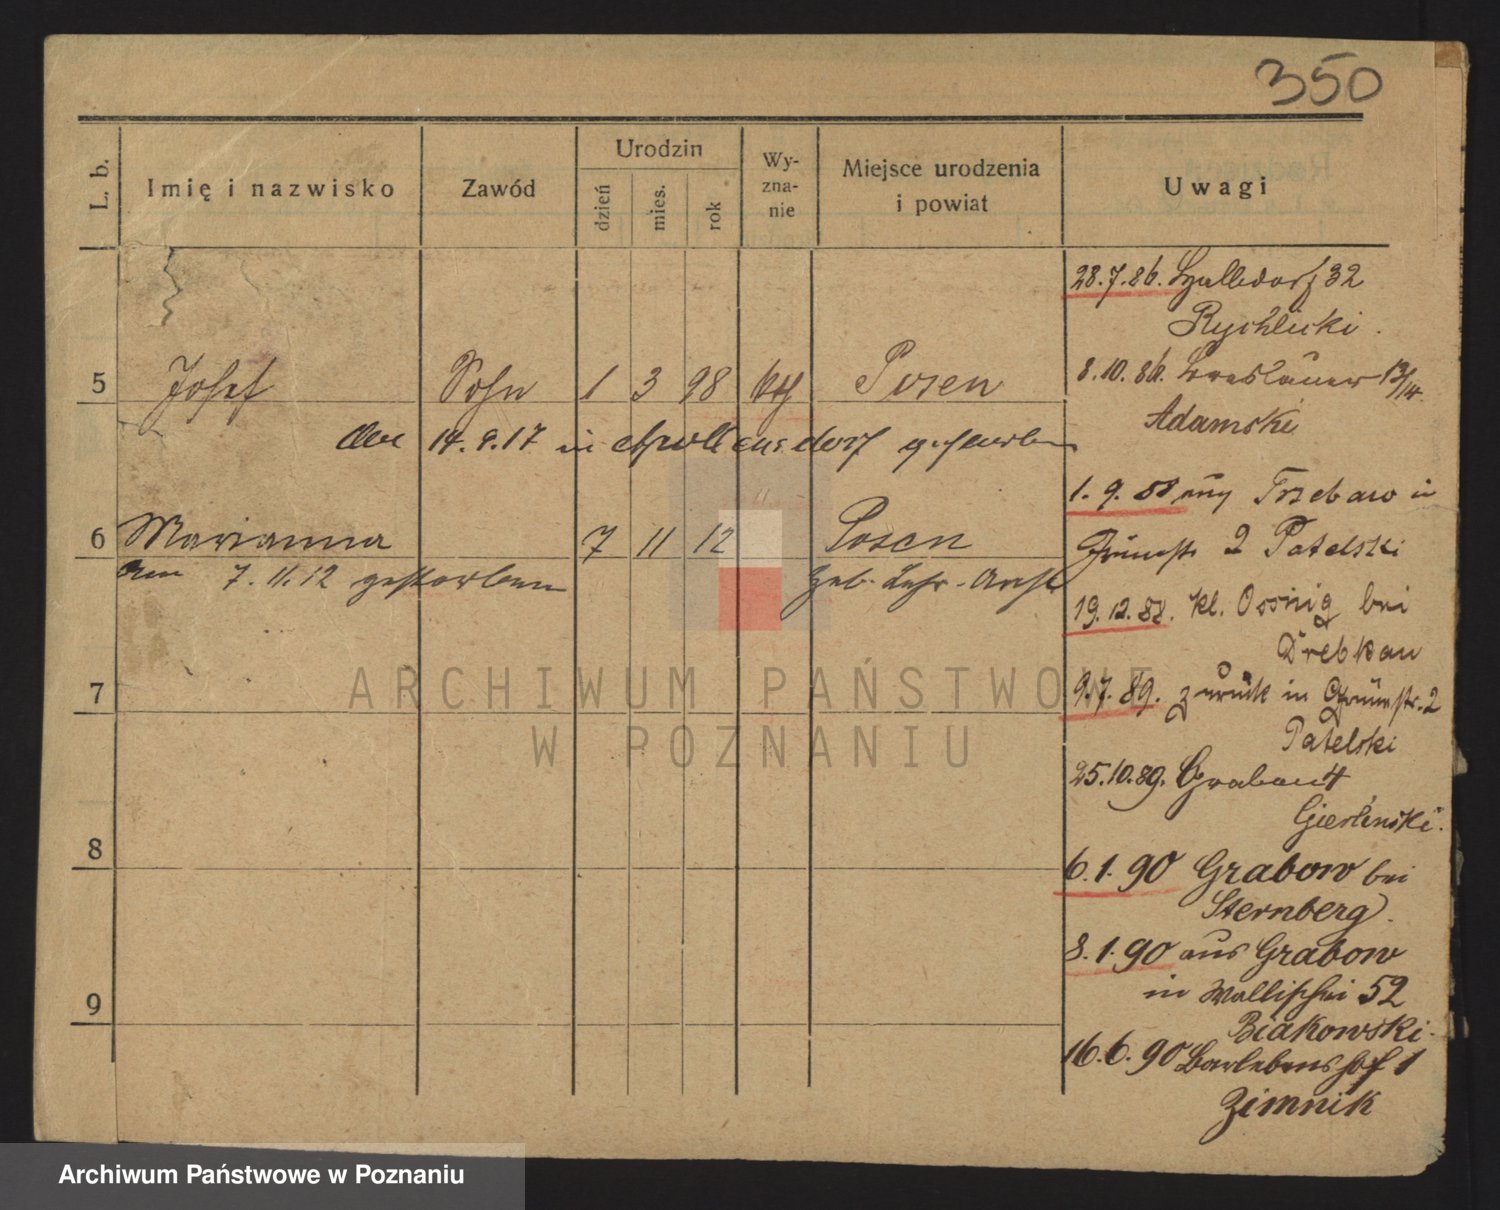 350
L. b.
Imię i nazwisko
Zawód
Urodzin
dzień
mies.
rok
Wy-
zna-
nie
Miejsce urodzenia
i powiat
Uwagi
5 Josef Sohn 1 3 98 kth Posen
den 14.9.17 in gestorben
6 Marianna 7 11 12 Posen
am 7.11.12 gestorben Heb. Lehr-Anst
7
8
9
28.7.86. Halbdorf 32
Rychlicki.
8.10.86. Breslauer 13/14.
Adamski
1.9.88 Trzebaw in
Grünestr 2 Patelski
19.12.88. kl. Ossnig bei
Drebkau
9.7.89. zurück in Grünestr. 2
Patelski
25.10.89. Graben 4
Gierlinski.
6.1.90 Grabow bei
Sternberg.
8.1.90 aus Grabow
in Wallischei 52
Biakowski.
16.6.90 Barlebenshof 1
Zimnik
ARCHIWUM PAŃSTWOWE
W POZNANIU
Archiwum Państwowe w Poznaniu